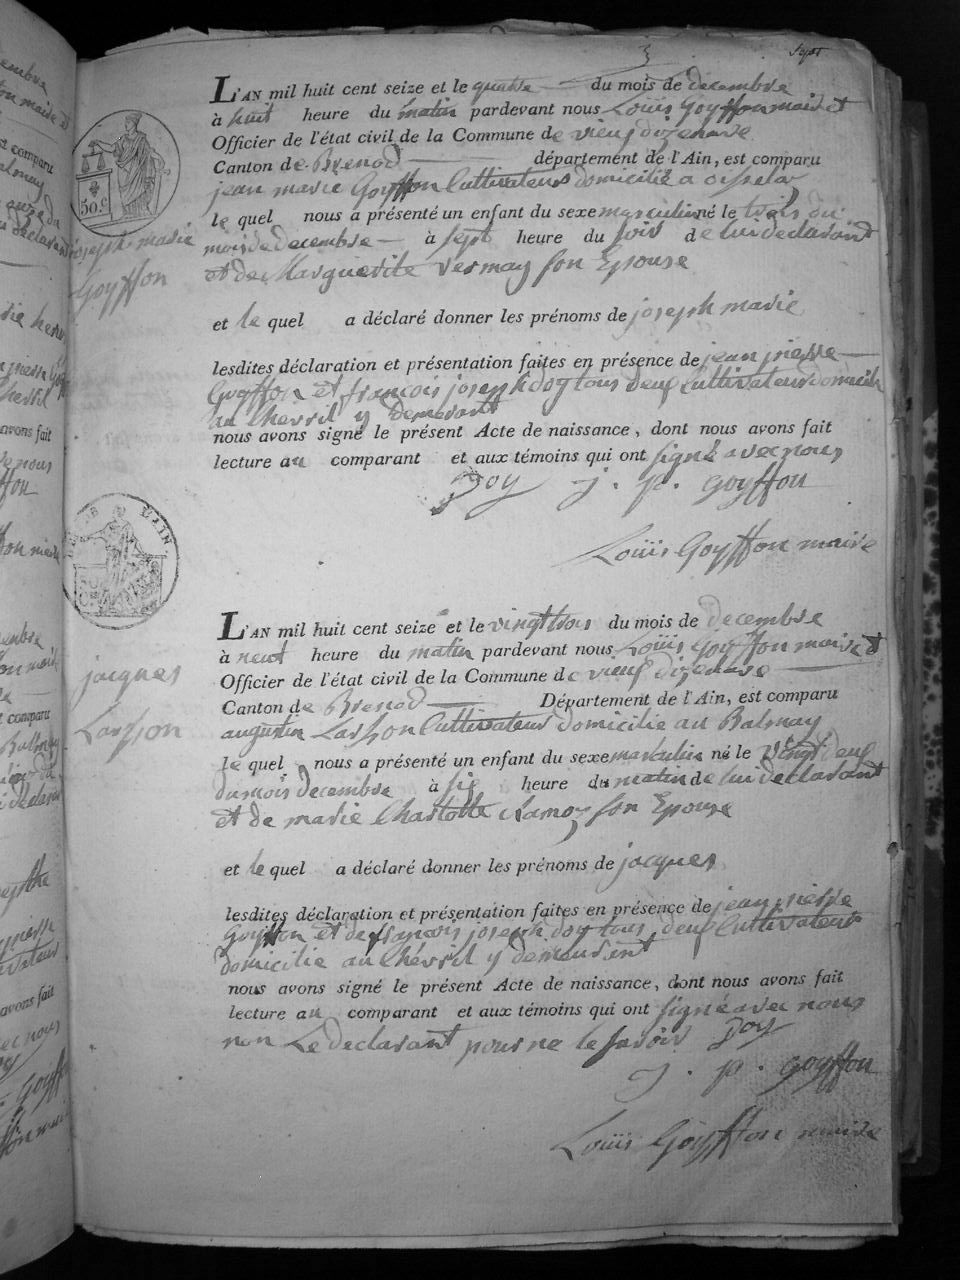 3
sept
L'AN mil huit cent seize et le quatre du mois de decembre
à huit heure du matin pardevant nous Louis Goyffon maire et
Officier de l'état civil de la Commune de vieux dizenave
Canton de Brenod département de l'Ain, est comparu
jean marie Goyffon Cultivateur domicilié a
le quel nous a présenté un enfant du sexe masculin né le trois du
mois de decembre à sept heure du soir de lui declarant
et de Marguerite vernay son Epouse
et le quel a déclaré donner les prénoms de joseph marie
lesdites déclaration et présentation faites en présence de jean pierre
Goyffon et françois joseph doy tous deux Cultivateur domicilié
au Chevril y demeurant
nous avons signé le présent Acte de naissance, dont nous avons fait
lecture au comparant et aux témoins qui ont signé avec nous
Doy j. p. goyffon
Louis Goyffon maire
joseph marie
Goyffon
50.c
AIN
L'AN mil huit cent seize et le vingt trois du mois de decembre
à neuf heure du matin pardevant nous Louis Goyffon maire et
Officier de l'état civil de la Commune de vieux dizenave
Canton de Brenod Département de l'Ain, est comparu
augustin Larsson Cultivateur domicilie au Balmay
le quel nous a présenté un enfant du sexe masculin né le vingt deux
du mois decembre à six heure du matin de lui declarant
et de marie Charlotte Ramoz son Epouse
et le quel a déclaré donner les prénoms de jacques
lesdites déclaration et présentation faites en présence de jean pierre
Goyffon et de françois joseph doy tous deux Cultivateur
domicilie au Chevril y demeurant
nous avons signé le présent Acte de naissance, dont nous avons fait
lecture au comparant et aux témoins qui ont signé avec nous
non Le declarant pour ne le savoir Doy
j. p. goyffon
Louis Goyffon maire
jacques
Larsson